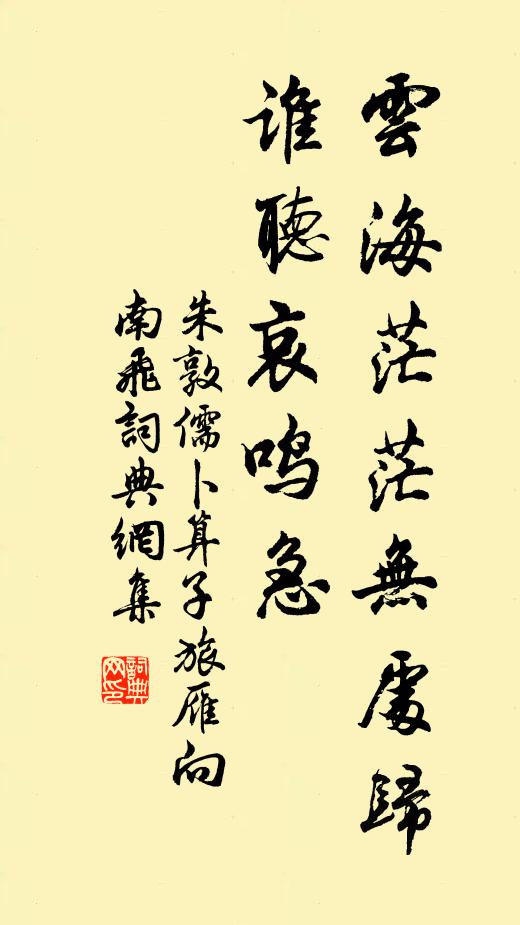 雲海茫茫無處歸
誰聽哀鳴急
朱敦儒卜算子旅雁向
南飛詞典網集
詞典
网印